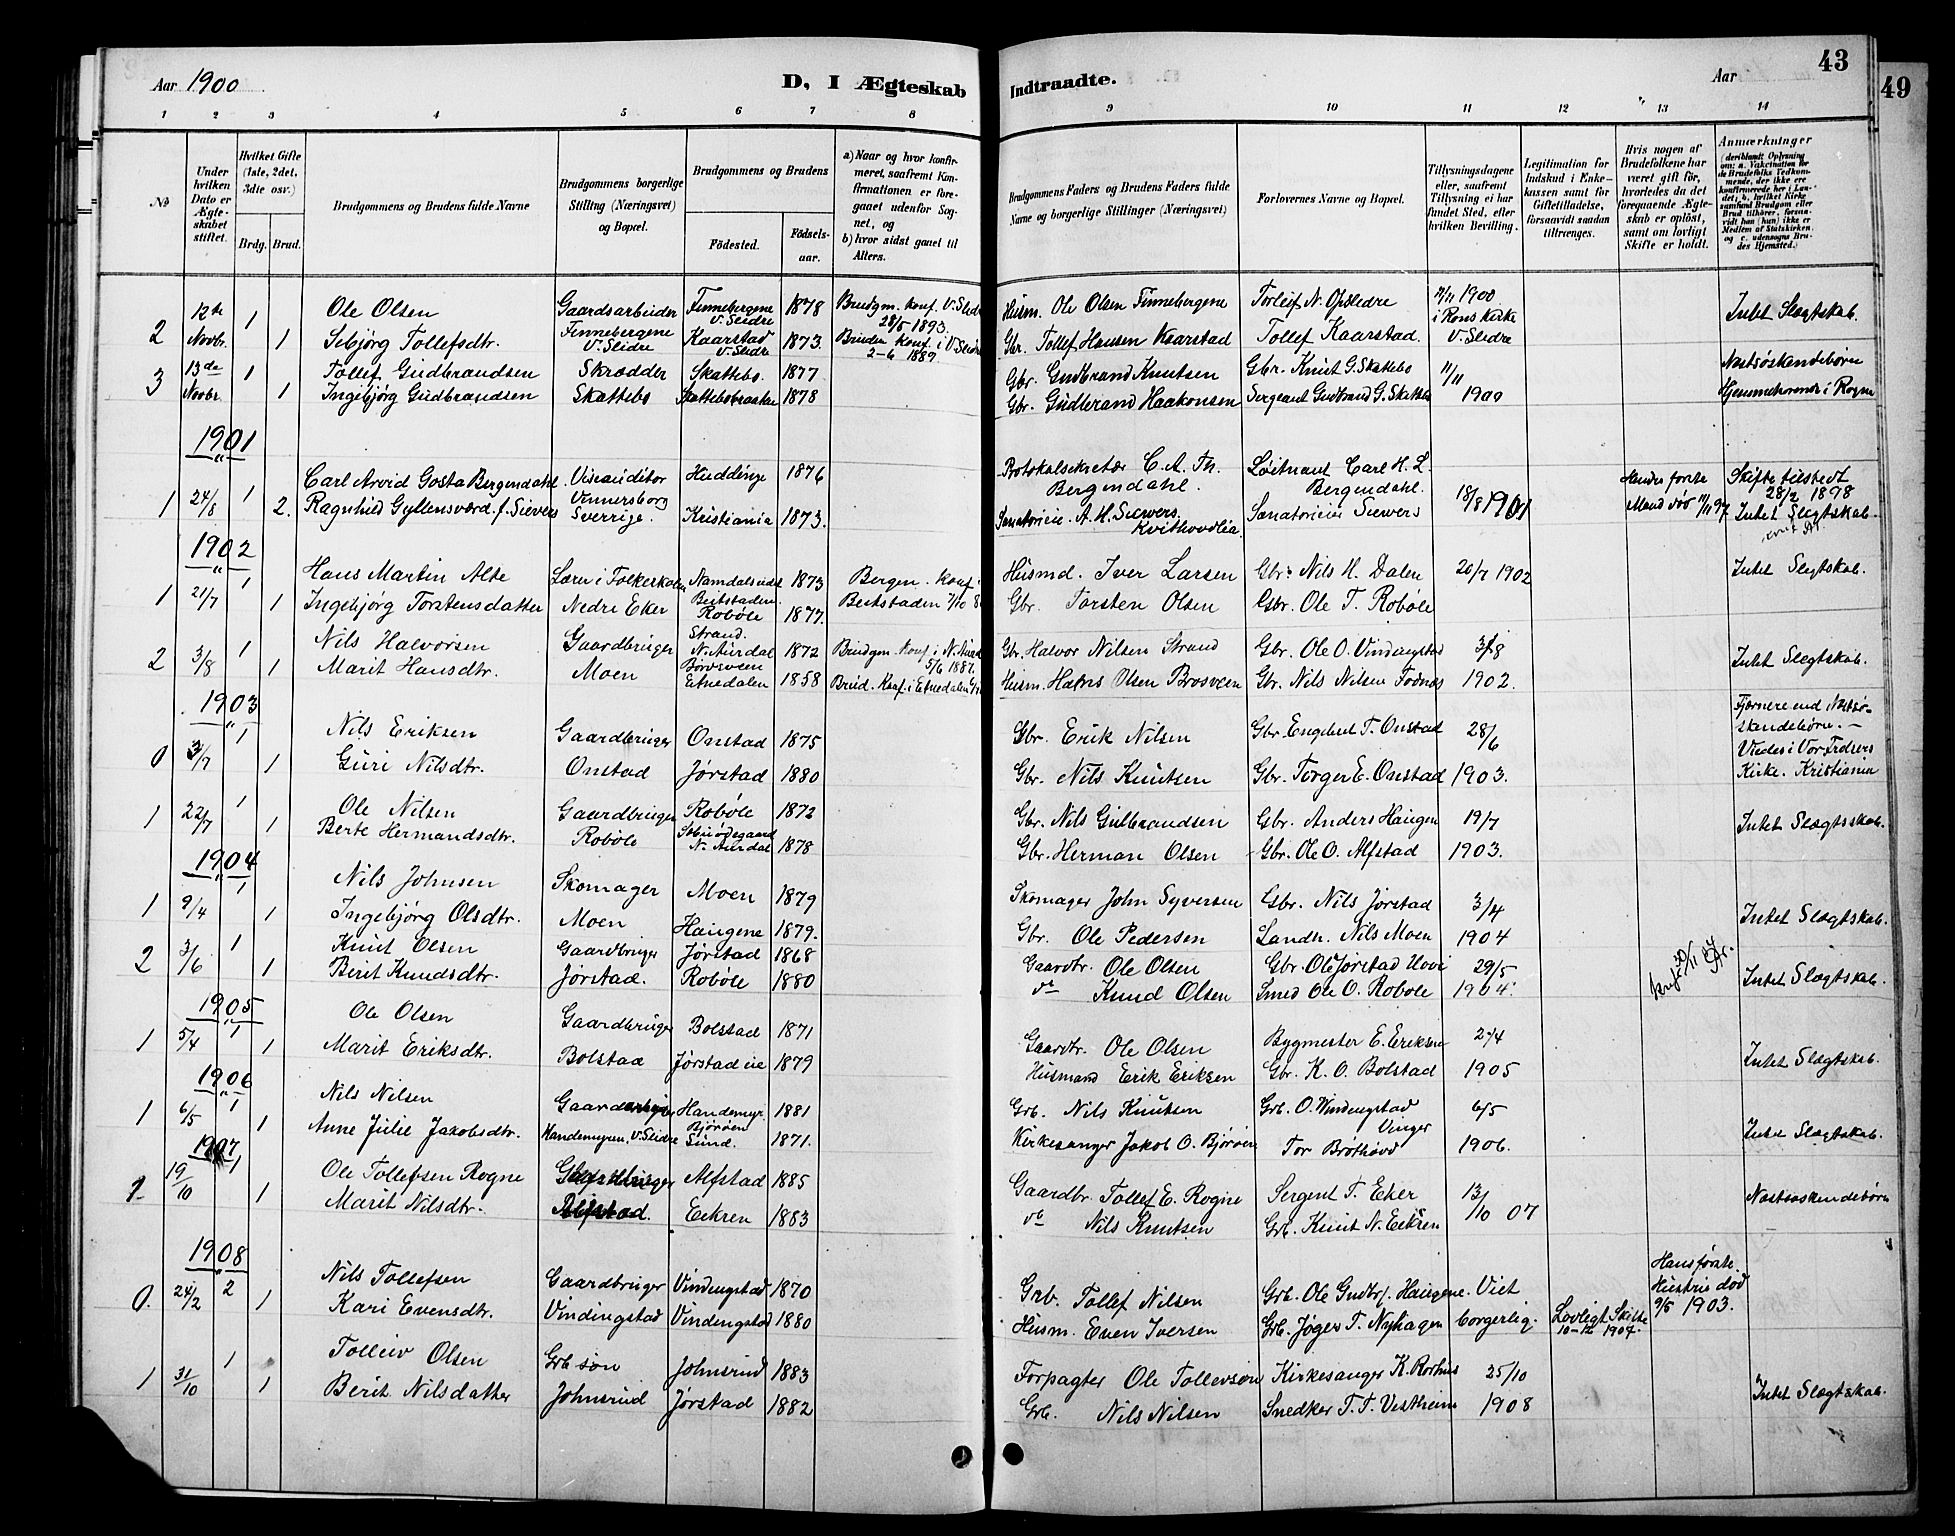 Aar 1900
D, I Ægteskab
Indtraadte.
Aar
43
49
1 2 3 4 5 6 7 8
9 10 11 12 13 14
No
Under hvilken Dato er Ægteskabet stiftet.
Hvilket Gifte (1ste, 2det, 3die osv.)
Brdg. Brud.
Brudgommens og Brudens fulde Navne
Brudgommens borgerlige Stilling (Næringsvei) og Bopæl.
Brudgommens og Brudens
Fødested.
Fødselsaar.
a) Naar og hvor konfirmeret, saafremt Konfirmationen er foregaaet udenfor Sognet, og
b) hvor sidst gaaet til Alters.
Brudgommens Faders og Brudens Faders fulde Navne og borgerlige Stillinger (Næringsvei)
Forlovernes Navne og Bopæl.
Tillysningsdagene eller, saafremt Tillysning ei har fundet Sted, efter hvilken Bevilling.
Legitimation for Indskud i Enkekassen samt for Giftetilladelse, forsaavidt saadan tiltrænges.
Hvis nogen af Brudefolkene har været gift før, hvorledes da det foregaaende Ægteskab er opløst, samt om lovligt Skifte er holdt.
Anmærkninger
(deriblandt Oplysning om: a. Vakcination for de Brudefolks Vedkommende, der ikke ere konfirmerede her i Landet; b. hvilket Kirkesamfund Brudgom eller Brud tilhører, forsaavidt han (hun) ikke er Medlem af Statskirken, og c. udensogns Brudes Hjemsted.)
2 12te Novbr. 1 Ole Olsen Gaardsarbeider Finnebergene V. Slidre 1878 Brudgm. konf. V. Slidre 28/5 1893. Husm. Ole Olsen Finnebergene Torleif N. Opslidre 11/11 1900 i Rons kirke V. Slidre Intet Slægtskab.
1 Sebjørg Tollefsdtr. Finnebergene V. Slidre Kaarstad V. Slidre 1873. Bruden konf. i V. Slidre 2-6 1889. Gbr. Tollef Hansen Kaarstad Tollef Kaarstad.
3 13de Novbr. 1 Tollef Gudbrandsen Skrædder Skattebo. 1877 Gbr. Gudbrand Knutsen Gbr. Knut G. Skattebo 11/11 1900 Næstsøskendebørn
1 Ingebjørg Gudbrandsen Skattebo 1878 Gbr. Gudbrand Haakonsen Sergeant Gudbrand G. Skattebo Hjemmehørende i Rogne
1901
1 24/8 1 Carl Arvid Gosta Bergendahl Viseauditor Huddinge 1876 Protokolsekretær C. A. Th. Bergendahl. Løitnant Carl H. L. Bergendahl. 18/8 1901 Hendes forste Mand død 11/11 97 Skifte tilstedt 28/2 1898
2. Ragnhild Gyllensværd f. Sievers Vennersborg Sverrige. Kristiania 1873. Sanatorieeier A. H. Siewers. Kvithovdlia. Sanatorieier Siewers Intet Slægtskab.
1902
1 21/7 1 Hans Martin Alte Lærer i Folkeskolen Namdalseidet Beitstaden. 1873 Bergen. Konf. i Beitstaden 7/10 Husmd. Iver Larsen Gbr. Nils H. Dalen 20/7 1902 Intet Slægtskab.
1 Ingebjørg Torstensdatter Nedre Eker Robøle 1877. Gbr. Torsten Olsen Gbr. Ole T. Robøle
2 3/8 1 Nils Halvorsen Gaardbruger Strand. N. Aurdal 1872 Brudgm. konf. i N. Aurdal 5/6 1887. Gbr. Halvor Nilsen Strand Gbr. Ole O. Vindingstad 3/8 1902. Intet Slægtskab.
1 Marit Hansdtr. Moen Børsveen Etnedalen 1858 Brud. Konf. i Etnedalen Husm. Hans Olsen Brosveen Gbr. Nils Nilsen Fodnæs
1903
0 3/7 1 Nils Eriksen Gaardbruger Onstad 1875 Gbr. Erik Nilsen Gbr. Engebret T. Onstad 28/6 1903. Fjernere end Næstsøskendebørn.—
1 Guri Nilsdtr. Onstad Jørstad 1880 Gbr. Nils Knutsen Gbr. Torger E. Onstad Viedes i Vor Frelsers Kirke. Kristiania
1 22/7 1 Ole Nilsen Gaardbruger Robøle 1872 Gbr. Nils Gulbrandsen Gbr. Anders Haugen 19/7 1903. Intet Slægtsskab.
1 Berte Hermandsdtr. Robøle N. Aurdal 1878 Gbr. Herman Olsen Gbr. Ole O. Alfstad
1904
1 9/4 1 Nils Johnsen Skomager Moen 1879 Skomager John Syversen Gbr. Nils Jørstad 3/4 1904 Intet Slægtskab.
1 Ingebjørg Olsdtr. Moen Haugene 1879. Gbr. Ole Pedersen Landh. Nils Moen
2 3/6 1 Knut Olsen Gaardbruger Jørstad 1868 Gaardbr. Ole Olsen Gbr. Ole Jørstad 29/5 1904. Intet Slægtskab.
1 Berit Knudsdtr. Jørstad. Robøle 1880 do Knud Olsen Smed Ole O. Robøle
1905
1 5/4 1 Ole Olsen Gaardbruger Bolstad 1871 Gaardbr. Ole Olsen Bygmester E. Eriksen 2/4 1905 Intet Slægtskab.
1 Marit Eriksdtr. Bolstad Jørstad eie 1879 Husmand Erik Eriksen Gbr. K. O. Bolstad
1906
1 6/5 1 Nils Nilsen Gaardbruger Handemyr. 1881 Grb. Nils Knutsen Grb. O. Windingstad 6/5 1906. Intet Slægtskab.
1 Anne Julie Jakobsdtr. Handemyren, V. Slidre Bjørøen Sund. 1871. Kirkesanger Jakob O. Bjørøen Tor Brøthovd
1907
1 19/10 1 Ole Tollefsen Rogne Gaardbruger Alfstad 1885 Gaardbr. Tollef E. Rogne Sergent T. Eker 13/10 07 Næstsøskendebørn
1 Marit Nilsdtr. Alfstad. Eekren 1883 do Nils Knutsen Grb. Knut N. Eekren
1908
0. 24/2 2 Nils Tollefsen Gaardbruger Vindingstad 1870 Grb. Tollef Nilsen Grb. Ole Gudbr. Haugene. Viet borgerlig. Lovligt Skifte 10-12 1907. Hans første Hustru død 9/5 1903.
1 Kari Evensdtr. Vindingstad Vindingstad 1880 Husm. Even Iversen Grb. Jøger T. Nyhagen
1 31/10 1 Tolleiv Olsen Grb søn Johnsrud 1883 Forpagter Ole Tollevsøn Kirkesanger K. Rorhus 25/10 1908 Intet Slægtskab.
1 Berit Nilsdatter Johnsrud Jørstad 1882 Grb. Nils Nilsen Snedker T. T. Vestheim